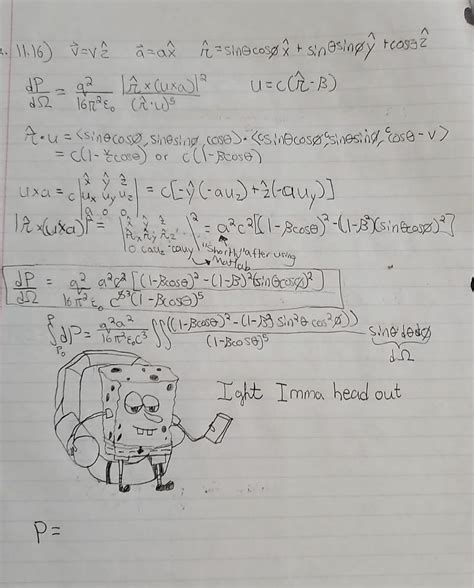 11.16) v⃗=vẑ a⃗=ax̂ r̂=sinθcosφx̂+sinθsinφŷ+cosθẑ
dP/dΩ = q²/16π²ε₀ |r̂×(u×a)|²/(r̂·u)⁵ u=c(r̂-β)
r̂·u = <sinθcosφ, sinθsinφ, cosθ>·<csinθcosφ, csinθsinφ, ccosθ-v>
= c(1-v/c cosθ) or c(1-βcosθ)
u×a = c|x̂ ŷ ẑ; ux uy uz; a 0 0| = c[-ŷ(-auz)+ẑ(-auy)]
|r̂×(u×a)|² = |x̂ ŷ ẑ; r̂x r̂y r̂z; 0 cauz -cauy|² = a²c²[(1-βcosθ)²-(1-β²)(sinθcosφ)²]
"Shortly" after using Matlab
dP/dΩ = q²/16π²ε₀ a²c²[(1-βcosθ)²-(1-β²)(sinθcosφ)²]/c⁵(1-βcosθ)⁵
∫dP = q²a²/16π²ε₀c³ ∫∫((1-βcosθ)²-(1-β²)sin²θcos²φ)/(1-βcosθ)⁵ sinθdθdφ
dΩ
Ight Imma head out
P=